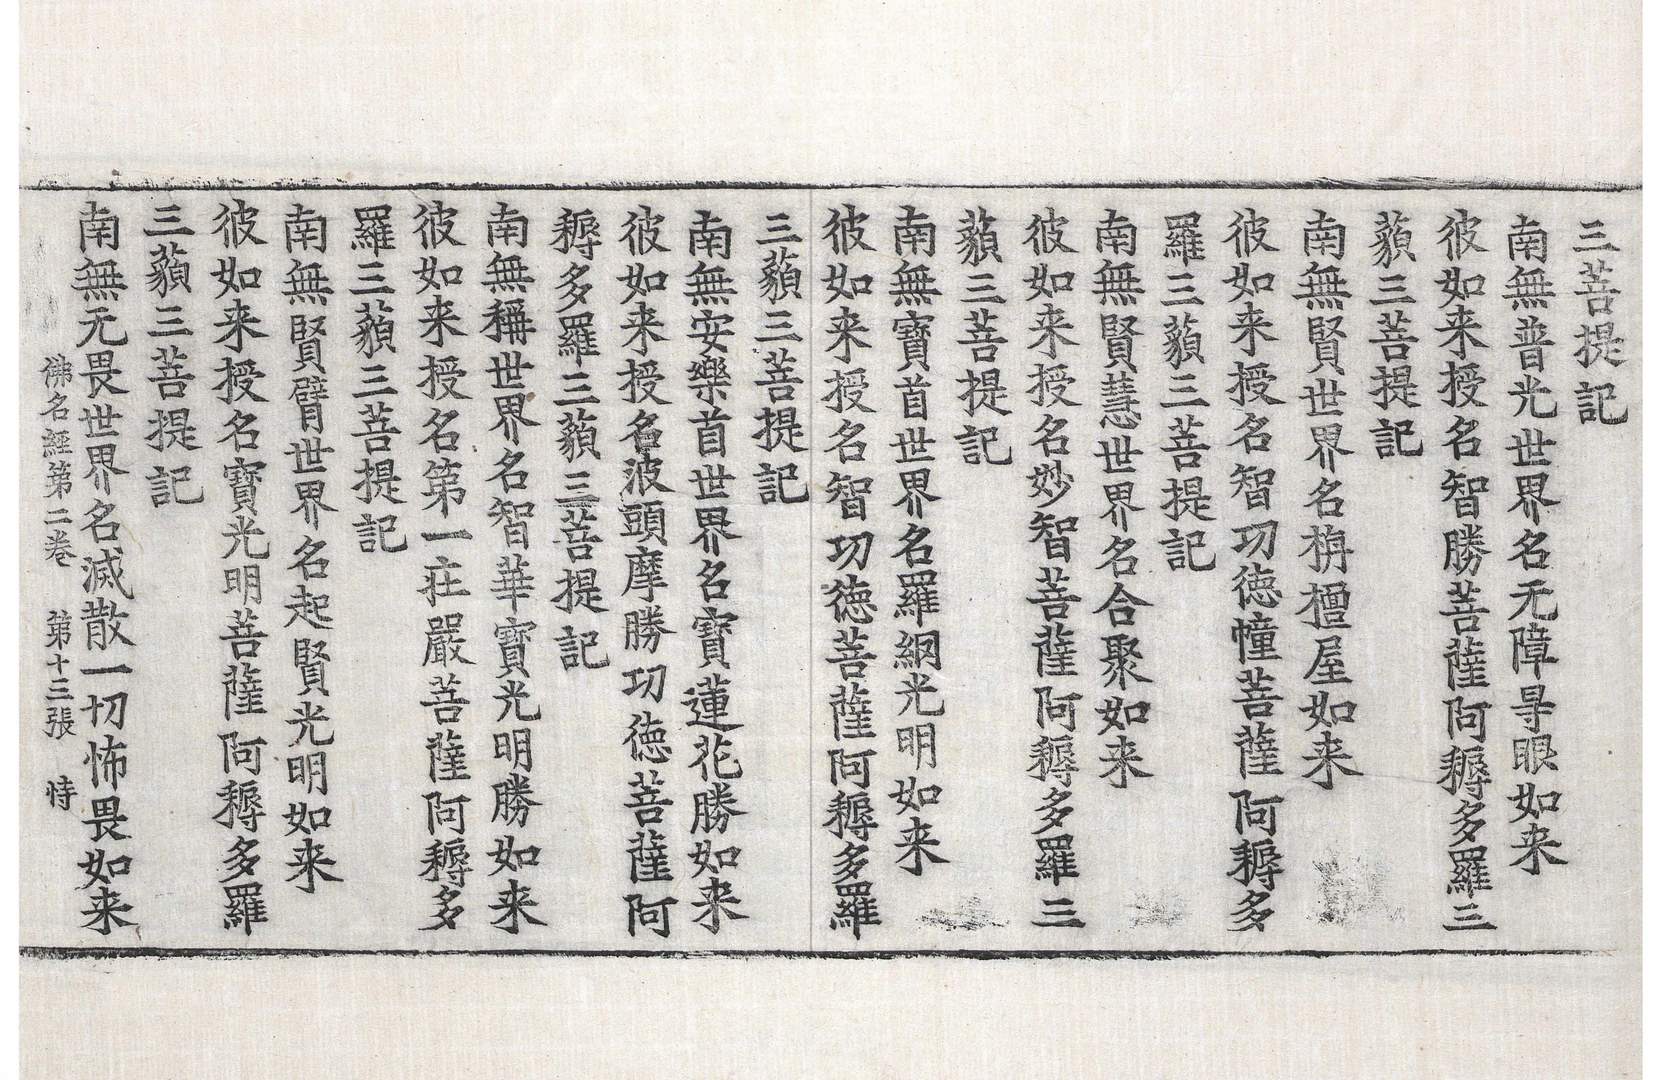 三菩提記
南無普光世界名无障㝵眼如来
彼如来授名智勝菩薩阿耨多羅三
藐三菩提記
南無賢世界名栴檀屋如来
彼如来授名智功徳幢菩薩阿耨多
羅三藐三菩提記
南無賢慧世界名合聚如来
彼如来授名妙智菩薩阿耨多羅三
藐三菩提記
南無寶首世界名羅網光明如来
彼如来授名智功徳菩薩阿耨多羅
三藐三菩提記
南無安樂首世界名寶蓮花勝如来
彼如来授名波頭摩勝功徳菩薩阿
耨多羅三藐三菩提記
南無稱世界名智華寶光明勝如来
彼如来授名第一莊嚴菩薩阿耨多
羅三藐三菩提記
南無賢臂世界名起賢光明如来
彼如来授名寶光明菩薩阿耨多羅
三藐三菩提記
南無无畏世界名滅散一切怖畏如来
佛名經第二卷 第十三張 恃